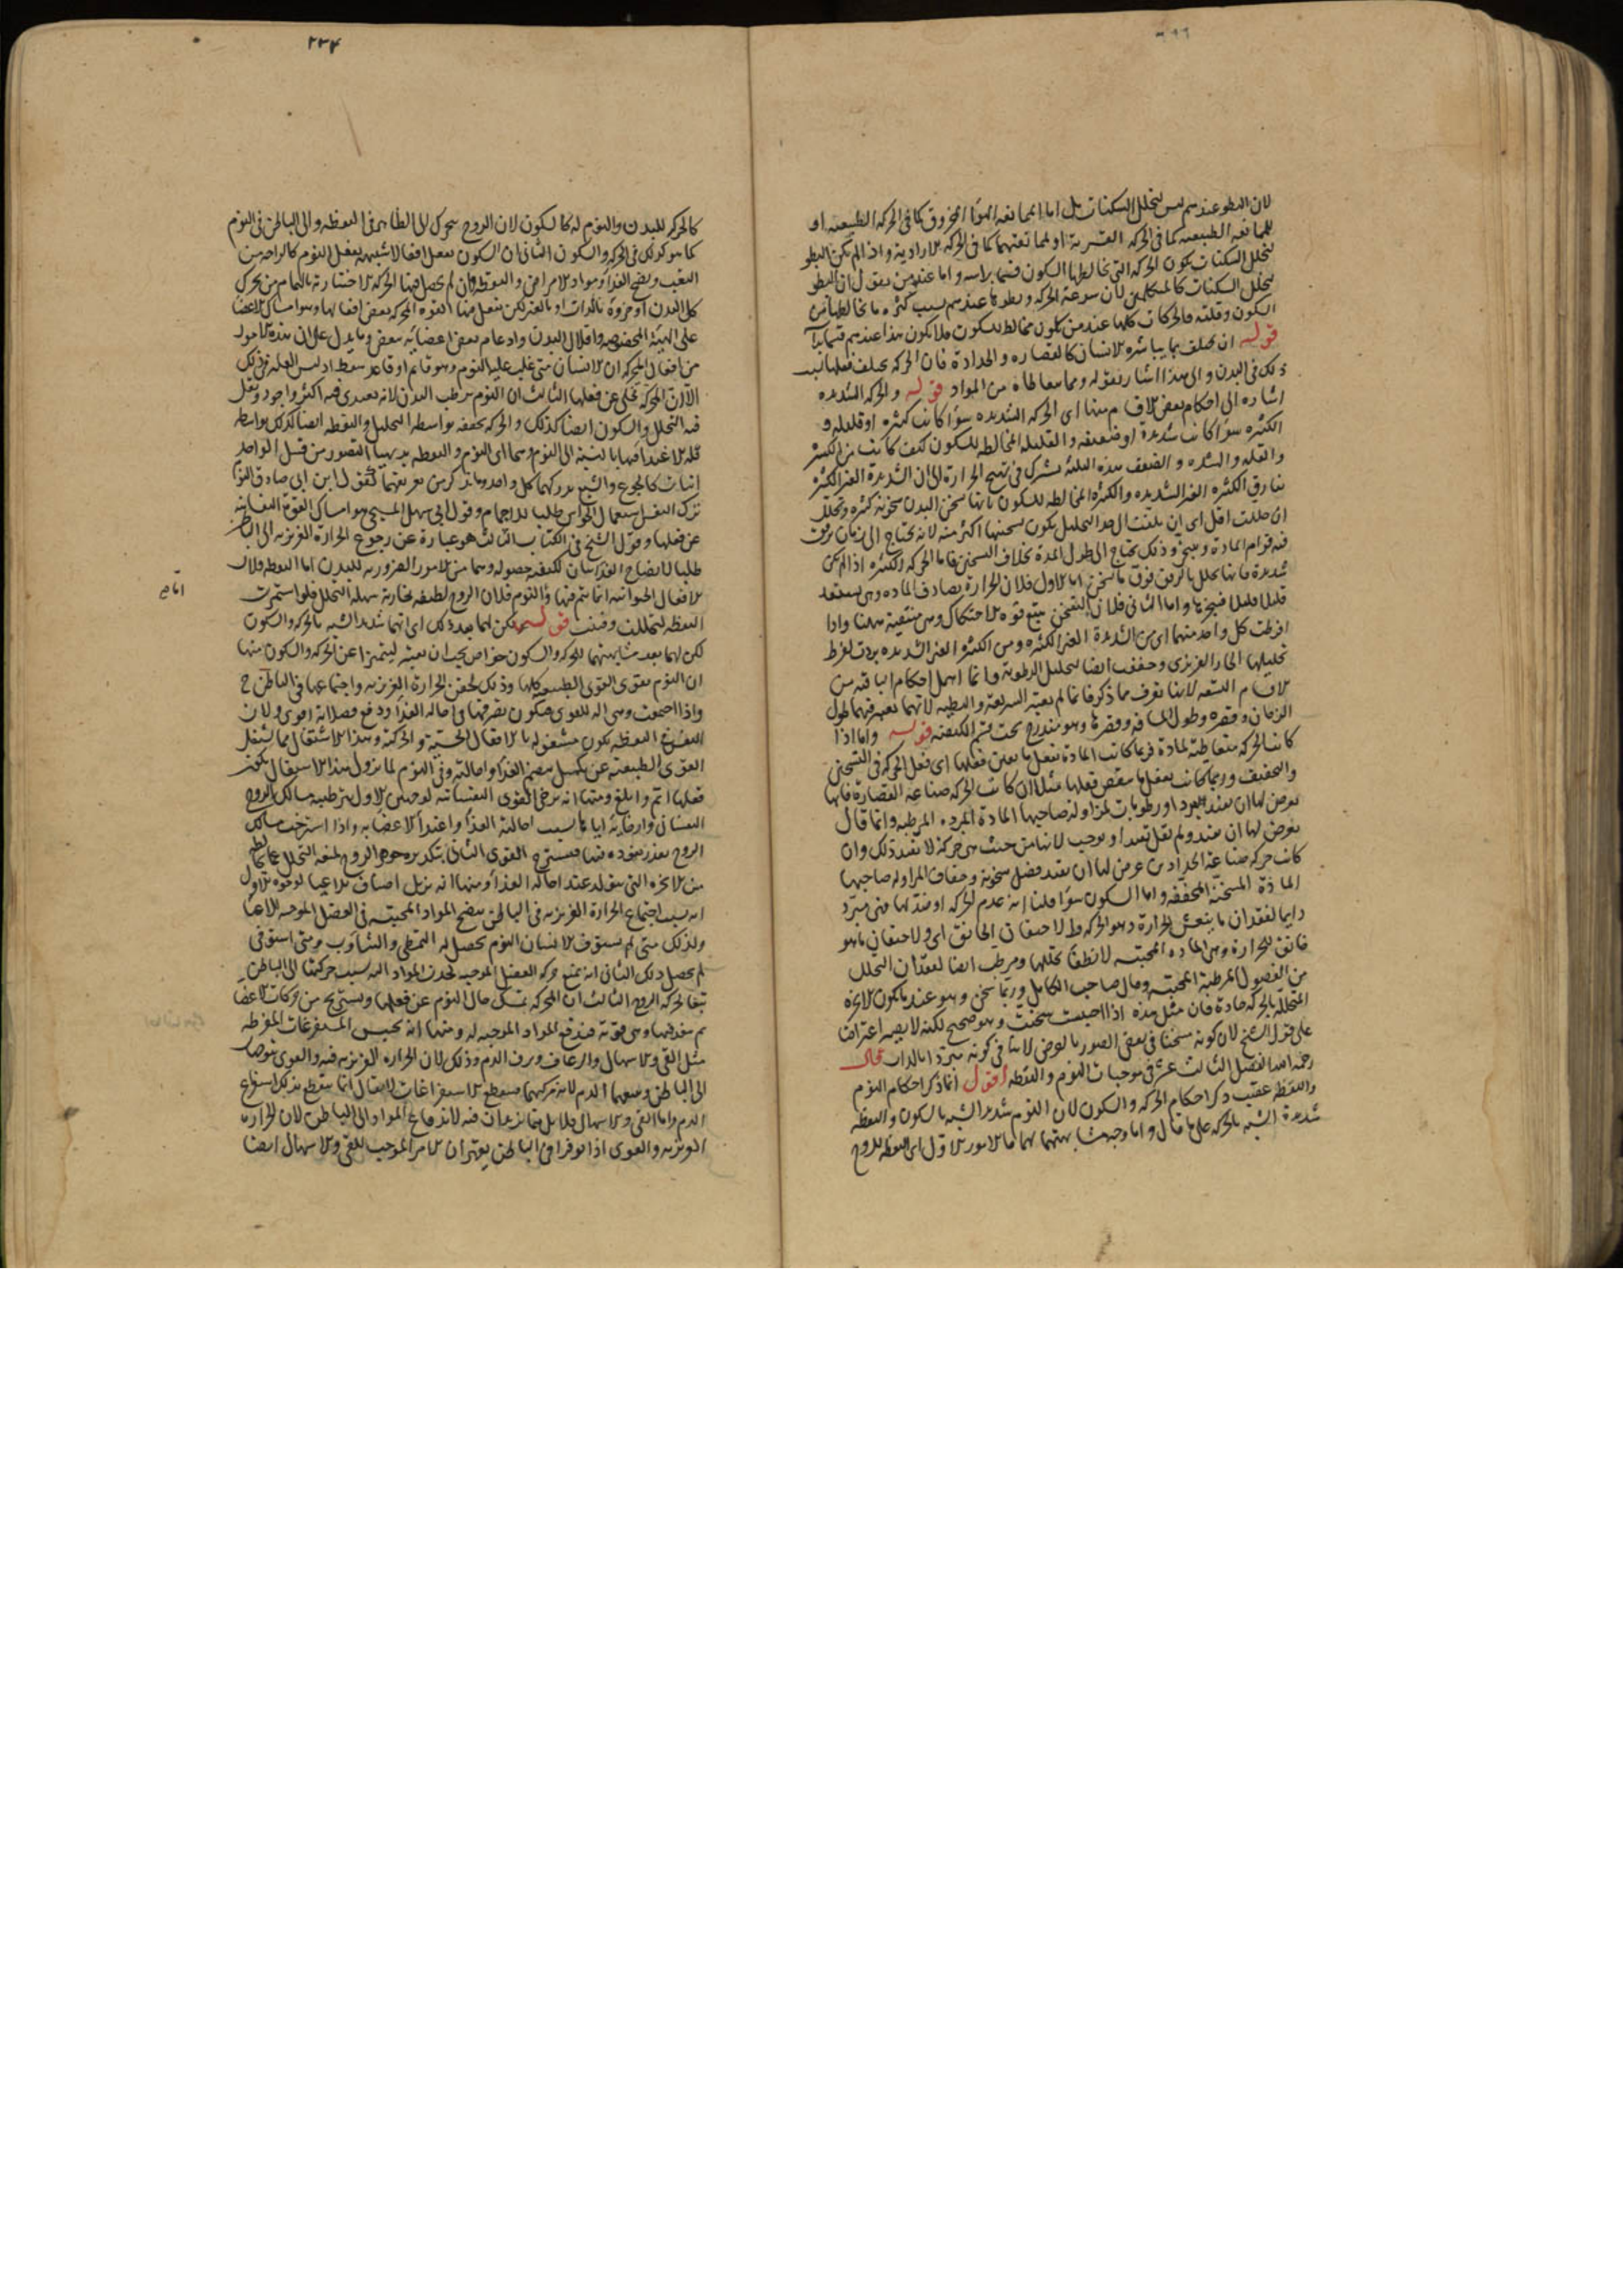 لان البطو عندهم ليس لتخلل السكنات بل اما لممانعه الهوا المخروق كما فى الحركه الطبيعيه او
للممانعه الطبيعيه كما فى الحركه القسريه او لممانعتهما كما فى الحركه الاراديه واذا لم يكن البطو
لتخلل السكنات يكون الحركه التى يخالطها السكون قسما براسه واما عند من يقول ان البطو
بتخلل السكنات كالمتكلمين لان سرعه الحركه وبطوها عندهم بسبب كثره ما يخالطها من
السكون وقلته فالحركات كلها عند من يكون مخالطه للسكون فلا يكون هذا عندهم قسما
قوله ان يختلف بما يباشره الانسان كالقصاره والحدادة فان الحركه يختلف فعلها
ذلك فى البدن والى هذا اشار بقوله وبما معاطاه من المواد قوله والحركه الشديده
اشاره الى احكام بعض الاقسام منها اى الحركه الشديده سوا كانت كثيره او قليله و
الكثيره سوا كانت شديدة او ضعيفه والقليله المخالطه للسكون كيف كانت من الكثره
والقله والشده والضعف هذه الثلثه يشترك فى تهييج الحرارة الا ان الشديدة الغير الكثيره
يفارق الكثيره الغير الشديده والكثيره المخالطه للسكون بانها تسخن البدن سخونه كثيره وتحلل
ان حللت اقل اى ان بلغت الى حد التحليل يكون تسخينها اكثر منه لانه يحتاج الى زمان يرقق
فيه قوام المادة ويتبخر وذلك يحتاج الى طول المدة بخلاف التسخين فاما الحركه الكثيره اذا لم يكن
شديدة فانها تحلل بالرفق فوق ما تسخن اما الاول فلان الحرارة يصادف الماده وهى يستعد
قليلا قليلا فيبخرها واما الثانى فلان التسخن يتبع قوه الاحتكاك وهى منتفيه ههنا واذا
افرطت كل واحد منهما اى من الشديدة الغير الكثيره ومن الكثيره الغير الشديده بردت لفرط
تحليلها الحار الغريزى وجففت ايضا لتحليل الرطوبه وانما اهمل احكام الباقيه من
الاقسام التسعه لانها تعرف مما ذكر فانما لم يعتبر السريعه والبطيه لانهما يعتبر فيهما طول
الزمان وقصره وطول المسافه وقصرها وهو مندرج تحت قسم الكيفيه قوله واما اذا
كانت الحركه متعاطيه لمادة فربما كانت المادة تفعل ما يعين فعلها اى فعل الحركه فى التسخين
والتجفيف وربما كانت تفعل ما ينقص فعلها مثلا ان كانت الحركه صناعه القصارة فانها
يعرض لها ان يفيد برد او رطوبات لمزاوله صاحبها المادة المبرده المرطبه وانما قال
يعرض لها ان يفيد ولم يقل تفيد او يوجب لانها من حيث هى حركه لا تفيد ذلك وان
كانت حركه صناعه الحدادين عرض لها ان يفيد فضل سخونه وجفاف لمزاوله صاحبها
المادة المسخنه المجففه واما السكون سوا قلنا انه عدم الحركه او ضد لها فهى مبرد
دايما لفقدان ما ينعش الحرارة وهو الحركه ط لاحتقان الخانق اى ولاحتقان ما هو
خانق للحرارة وهى الماده المحتبسه لانطفا تحللها ومرطب ايضا لفقدان التحلل
من الفضول المرطبة المحتبسه وقال صاحب الكامل وربما سخن وهو عند ما يكون الابخره
المتحللة بالحركه حادة فان مثل هذه اذا احبست سخنت وهو صحيح لكنه لا يصير اعتراضا
على قول الشيخ لان كونه مسخنا فى بعض الصور بالعرض لا ينافى كونه مبردا بالذات قال
رحمه الله الفصل الثالث عشر فى موجبات النوم واليقظه اقول انما ذكر احكام النوم
واليقظه عقيب ذكر احكام الحركه والسكون لان النوم شديد الشبه بالسكون واليقظه
شديدة الشبه بالحركه على ما قال واما وجه مشابهتهما لهما فالامور الاول ان اليقظه للروح
٢٣٤
كالحركه للبدن والنوم له كالسكون لان الروح يتحرك الى الظاهر فى اليقظه والى الباطن فى النوم
كما هو كذلك فى الحركه والسكون الثانى ان السكون يفعل افعالا شبيهه بفعل النوم كالراحه من
التعب ونضج الغذا ومواد الامراض واليقظه وان لم يحصل فيها الحركه الاختياريه بالتمام من تحرك
كل البدن او جزوه بالذات او بالغير لكن يفعل فيها القوه المحركه بعض افعالها وهو امساك الاعضا
على الهيئه المخصوصه واقلال البدن وادعام بعض اعضايه ببعض ومما يدل على ان هذه الامور
من افعال المحركه ان الانسان متى غلب عليه النوم وهو قايم او قاعد سقط اذ ليس العله فى ذلك
الا ان المحركه تخلى عن فعلها الثالث ان النوم يرطب البدن لانه يغتذى فيه اكثر واجود ويقل
فيه التحلل والسكون ايضا كذلك والحركه تجففه بواسطه التحليل واليقظه ايضا كذلك بواسطه
قله الاغتذا فيها بالنسبه الى النوم وهما اى النوم واليقظه بديهيا التصور من قبيل الواجد
انيات كالجوع والشبع يدركهما كل واحد وما يذكر من تعريفهما كقول ابن ابى صادق النوم
ترك النفس استعمال الحواس طلبا للاجمام وقول ابى سهل المسيحى هو امساك القوة النفسانيه
عن فعلها وقول الشيخ فى الكتاب الثالث هو عبارة عن رجوع الحرارة الغريزيه الى الباطن
طلبا لانضاج الغذا بيان لكيفيه حصوله وهما من الامور الضروريه للبدن اما اليقظه فلان
الافعال الحيوانيه انما يتم فيها والنوم فلان الروح لطيفه بخاريه سهله التحلل فلو استمرت
اليقظه لتحللت وفنيت قوله لكن لهما بعد ذلك اى انهما شديدا الشبه بالحركه والسكون
لكن لهما بعد مشابهتهما للحركه والسكون خواص يجب ان يعتبر ليتميزا عن الحركه والسكون منها
ان النوم يقوى القوى الطبيعيه كلها وذلك لحقن الحرارة الغريزيه واجتماعها فى الباطن ح
واذا اجتمعت وهى اله للقوى فيكون تصرفها فى احاله الغذا ودفع فضلاته اقوى ولان
النفس فى اليقظه يكون مشغوله بالافعال الحسيه والحركيه وهذا الاشتغال مما يشغل
القوى الطبيعيه عن تكميل هضم الغذا واحالته وفى النوم لما يزول هذا الاشتغال يكون
فعلها اتم وابلغ ومنها انه يرخى القوى النفسانيه لوجهين الاول بترطيبه مسالك الروح
النفسانى وارخايه اياها بسبب احالته الغذا واغتذا الاعضا به واذا استرخت مسالك
الروح تعذر نفوذه فيها فيسترخى القوى الثانى بتكديره جوهر الروح لمنعه التحلل عما يخالطه
من الابخره التى يتولد عند احاله الغذا ومنها انه يزيل اصناف الاعيا لوجوه الاول
انه بسبب اجتماع الحرارة الغريزيه فى الباطن ينضج المواد المحتبسه فى العضل الموجبه للاعيا
ولذلك متى لم يستوف الانسان النوم يحصل له التمطى والتثاوب ومتى استوفى
لم يحصل ذلك الثانى انه يمنع حركه العضل الموجبه لجذب المواد اليه بسبب حركتها الى الباطن
تبعا لحركه الروح الثالث ان المحركه تمسك حال النوم عن فعلها ويستريح من حركات الاعضا
ثم ينفذ فيها وهى قويه فيدفع المواد الموجبه له ومنها انه يحبس المستفرغات المفرطه
مثل القى والاسهال والرعاف ونزف الدم وذلك لان الحراره الغريزيه فيه والقوى يتوجهان
الى الباطن ويتبعهما الدم لانه مركبهما فينقطع الاستفراغات لا يقال انما ينقطع بذلك استفراغ
الدم واما القى والاسهال فلا بل ربما يزيدان فيه لاندفاع المواد الى الباطن لان الحراره
الغريزيه والقوى اذا توفرا فى الباطن يقهران الامر الموجب للقى والاسهال ايضا